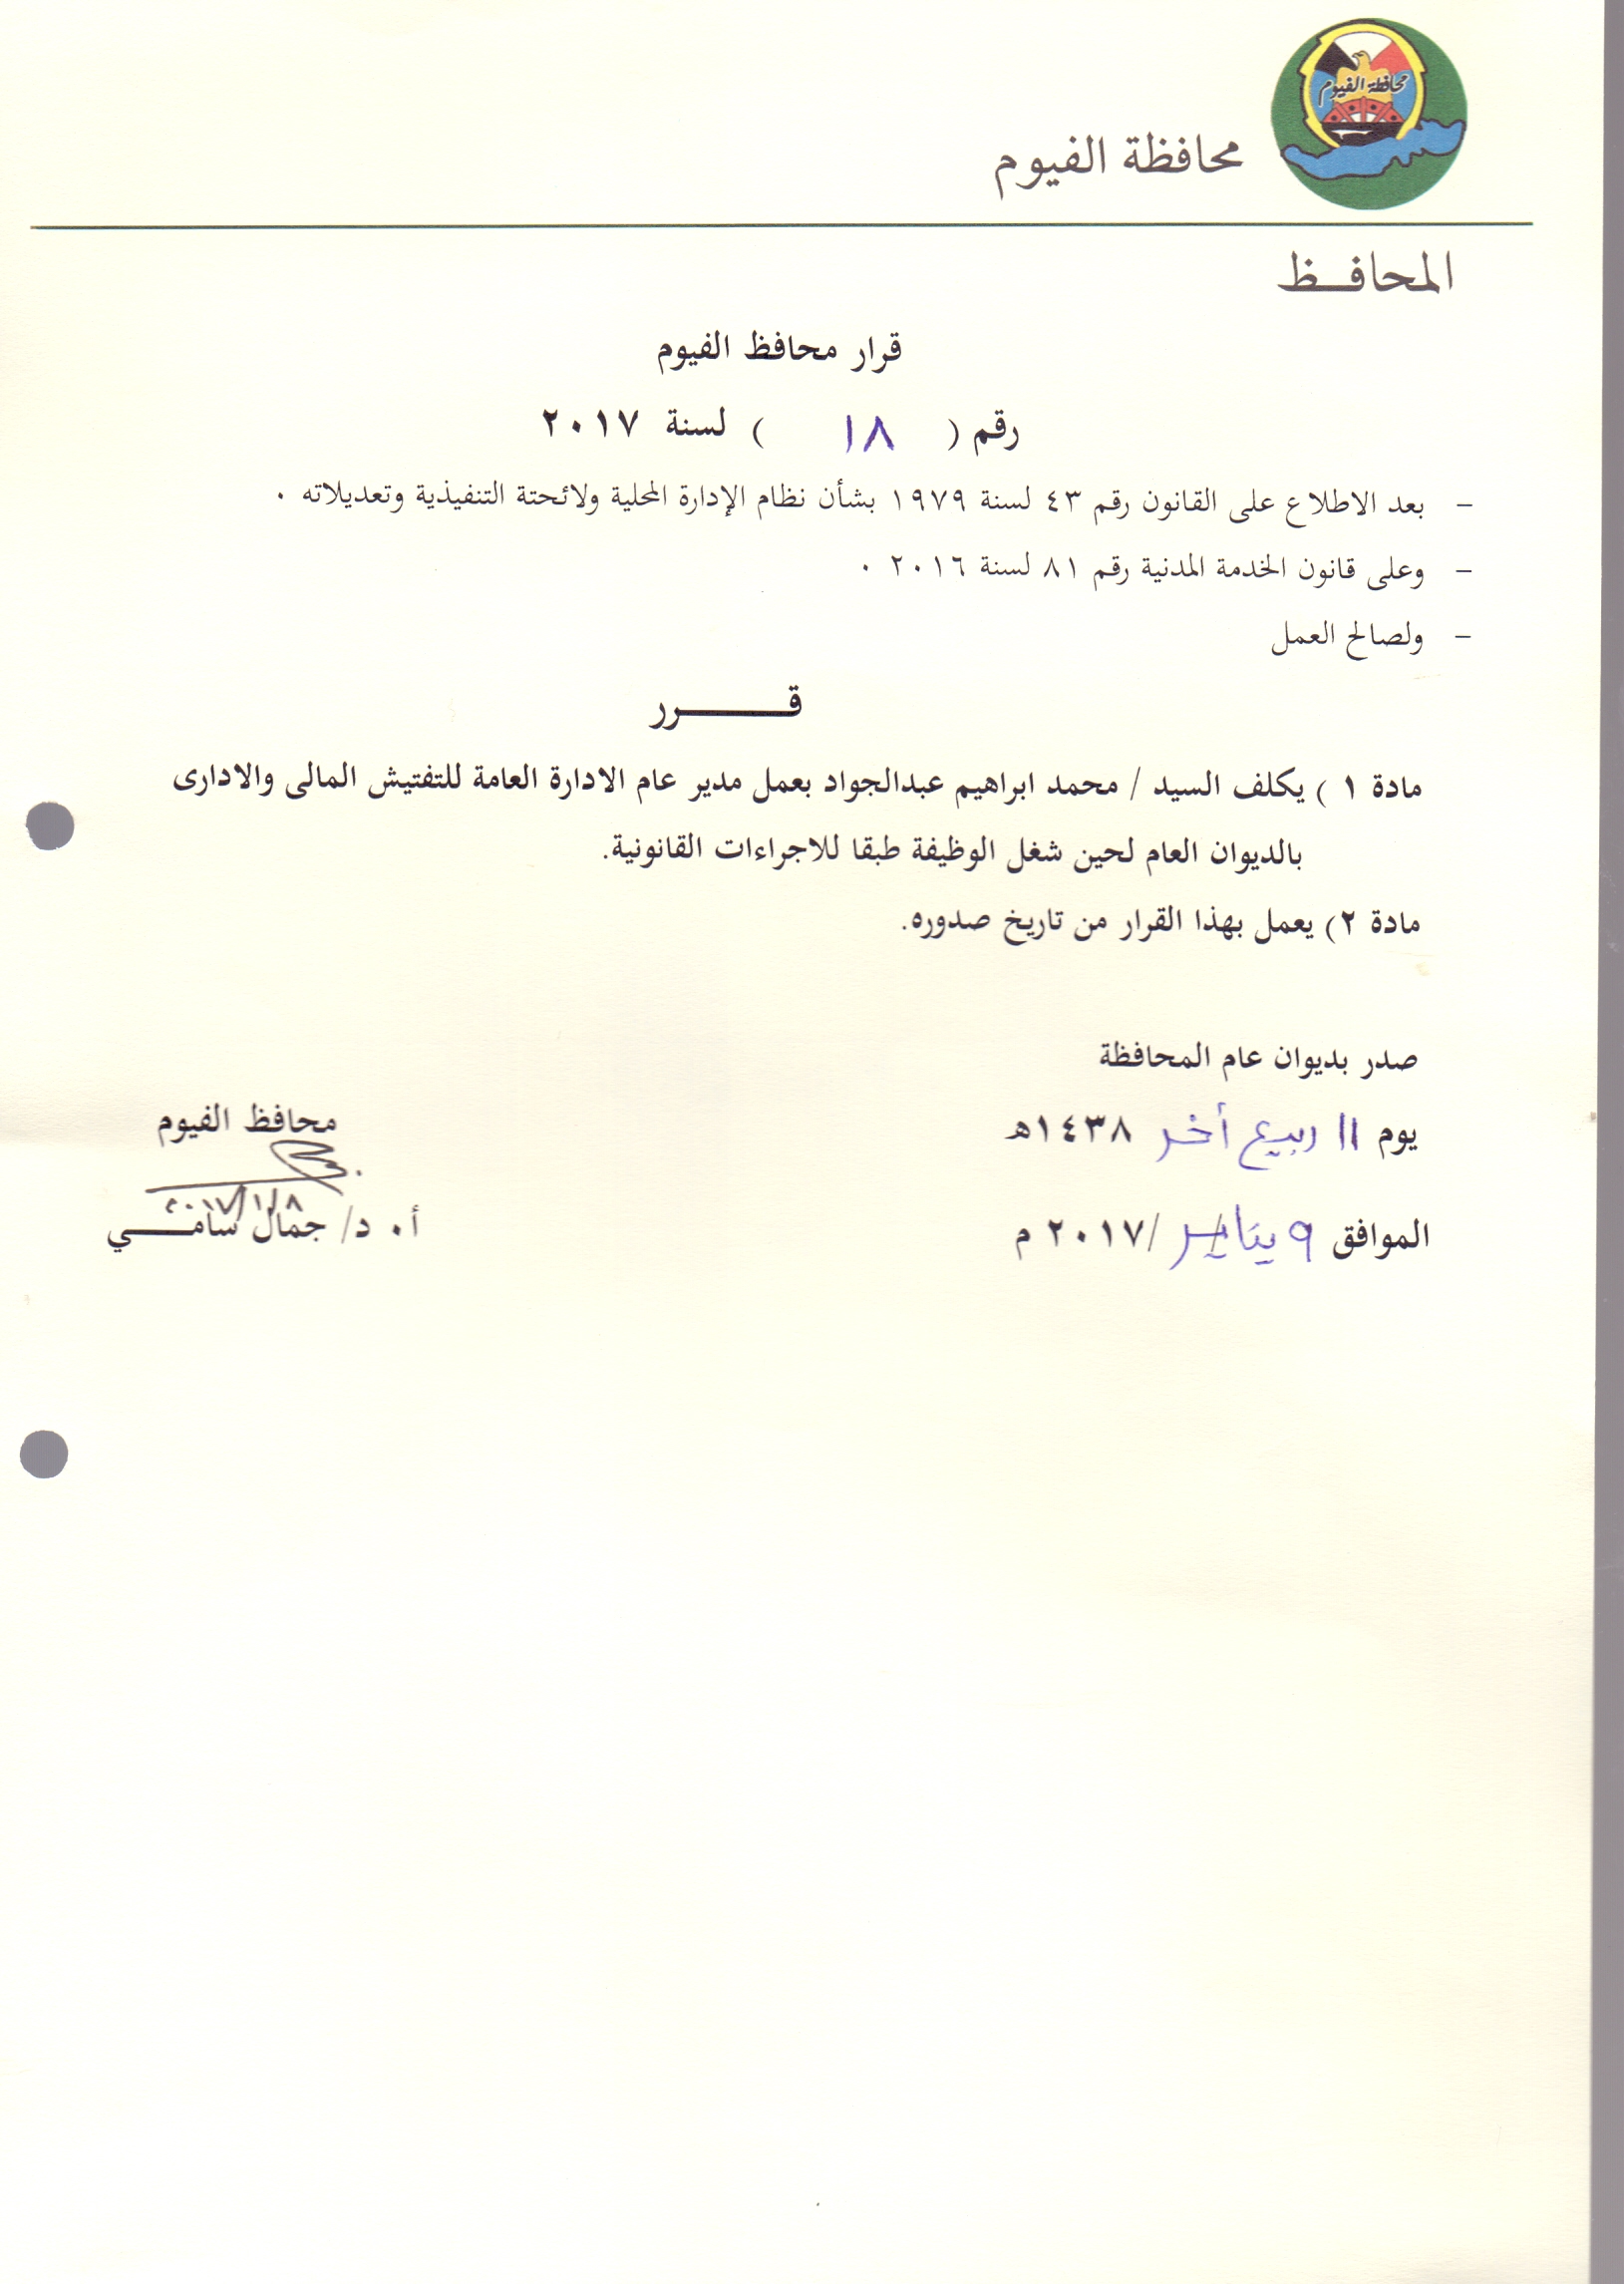 محافظة الفيوم
محافظة الفيوم
المحافــظ
قرار محافظ الفيوم
رقم ( ١٨ ) لسنة ٢٠١٧
- بعد الاطلاع على القانون رقم ٤٣ لسنة ١٩٧٩ بشأن نظام الإدارة المحلية ولائحتة التنفيذية وتعديلاته ٠
- وعلى قانون الخدمة المدنية رقم ٨١ لسنة ٢٠١٦ ٠
- ولصالح العمل
قـــــــرر
مادة ١ ) يكلف السيد / محمد ابراهيم عبدالجواد بعمل مدير عام الادارة العامة للتفتيش المالى والادارى
بالديوان العام لحين شغل الوظيفة طبقا للاجراءات القانونية.
مادة ٢) يعمل بهذا القرار من تاريخ صدوره.
صدر بديوان عام المحافظة
يوم ١١ ربيع أخر ١٤٣٨هـ
الموافق ٩ يناير /٢٠١٧ م
محافظ الفيوم
٢٠١٧/١/٨
أ٠ د/ جمال سامـــــي